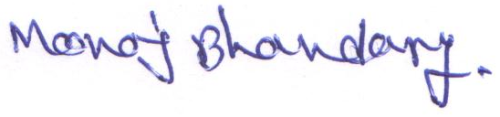 Manoj Bhandary.